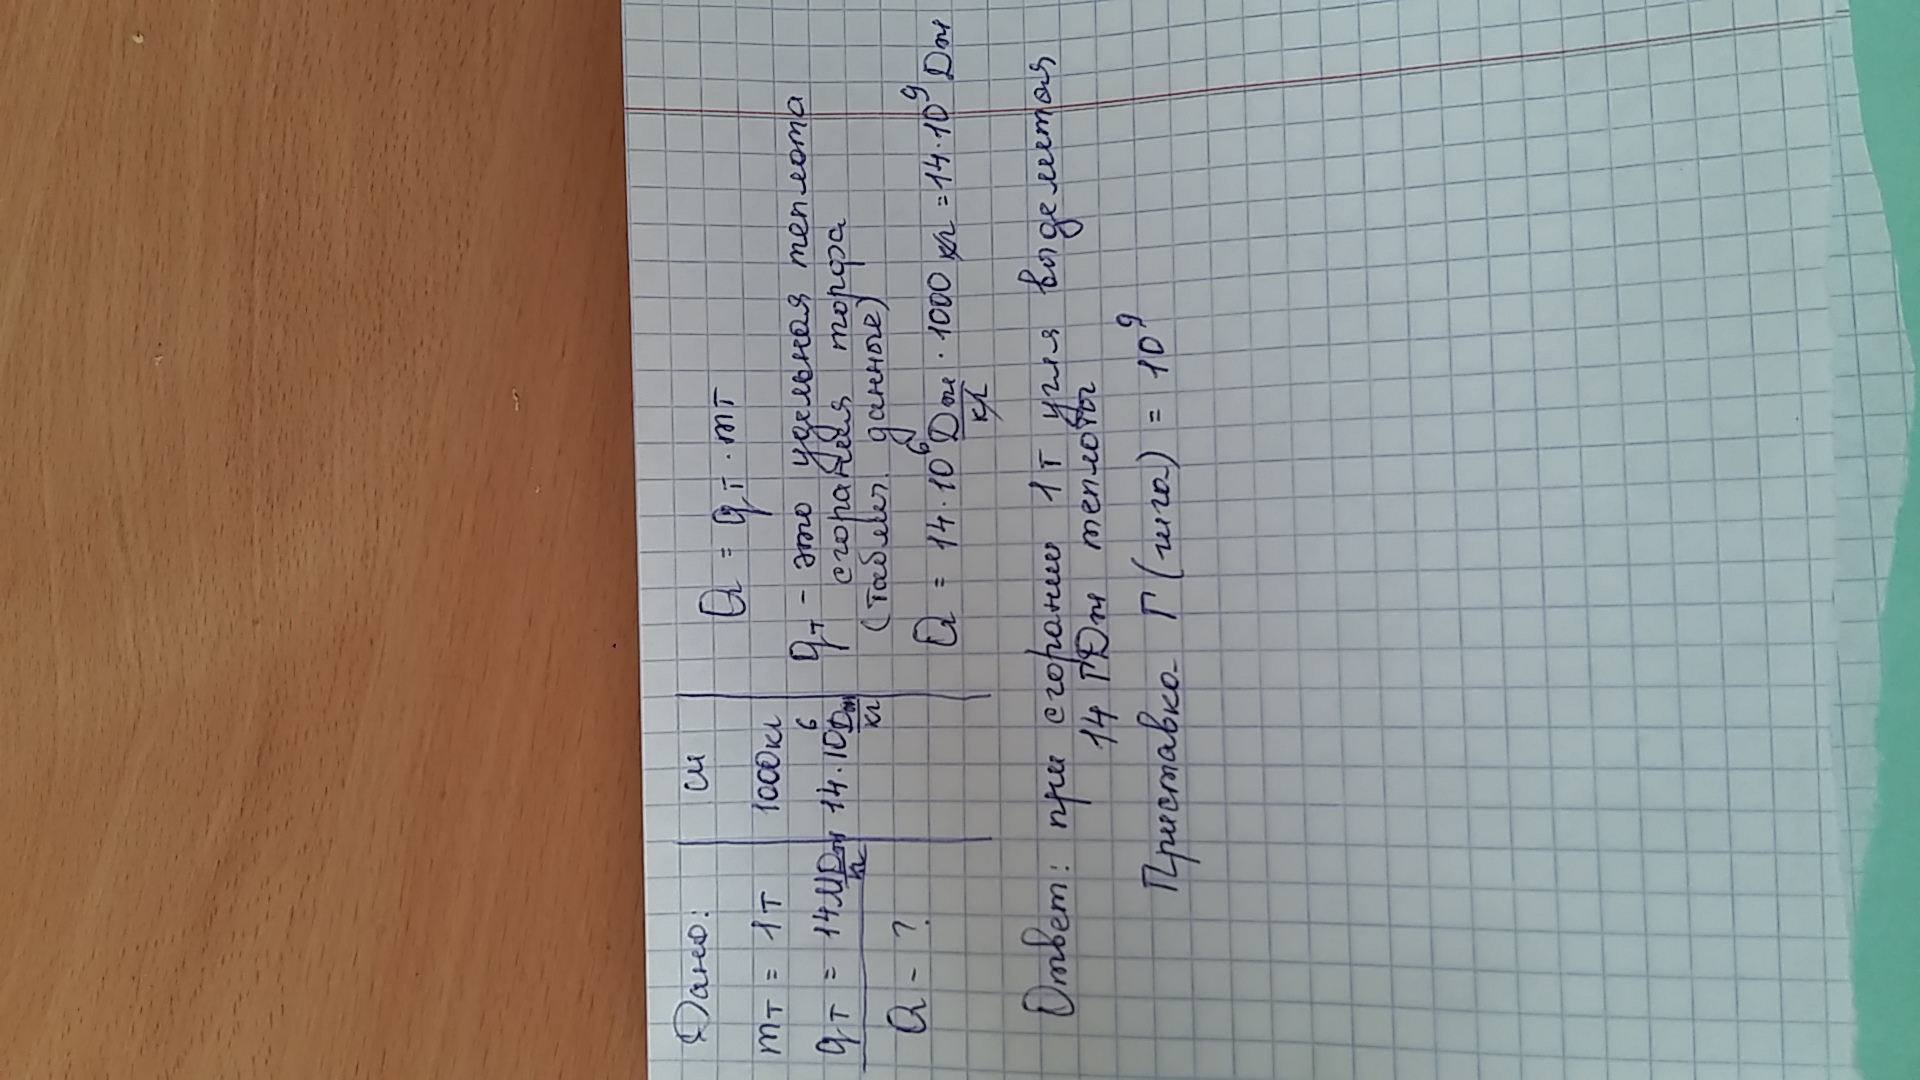 Дано:
mт = 1т
qт = 14 МДж/кг
Q - ?
СИ
1000кг
14·10⁶ Дж/кг
Q = qт · mт
qт - это удельная теплота
сгорания торфа
(таблич. данные)
Q = 14·10⁶ Дж/кг · 1000 кг = 14·10⁹ Дж
Ответ: при сгорании 1т угля выделится
14 ГДж теплоты
Приставка Г (гига) = 10⁹